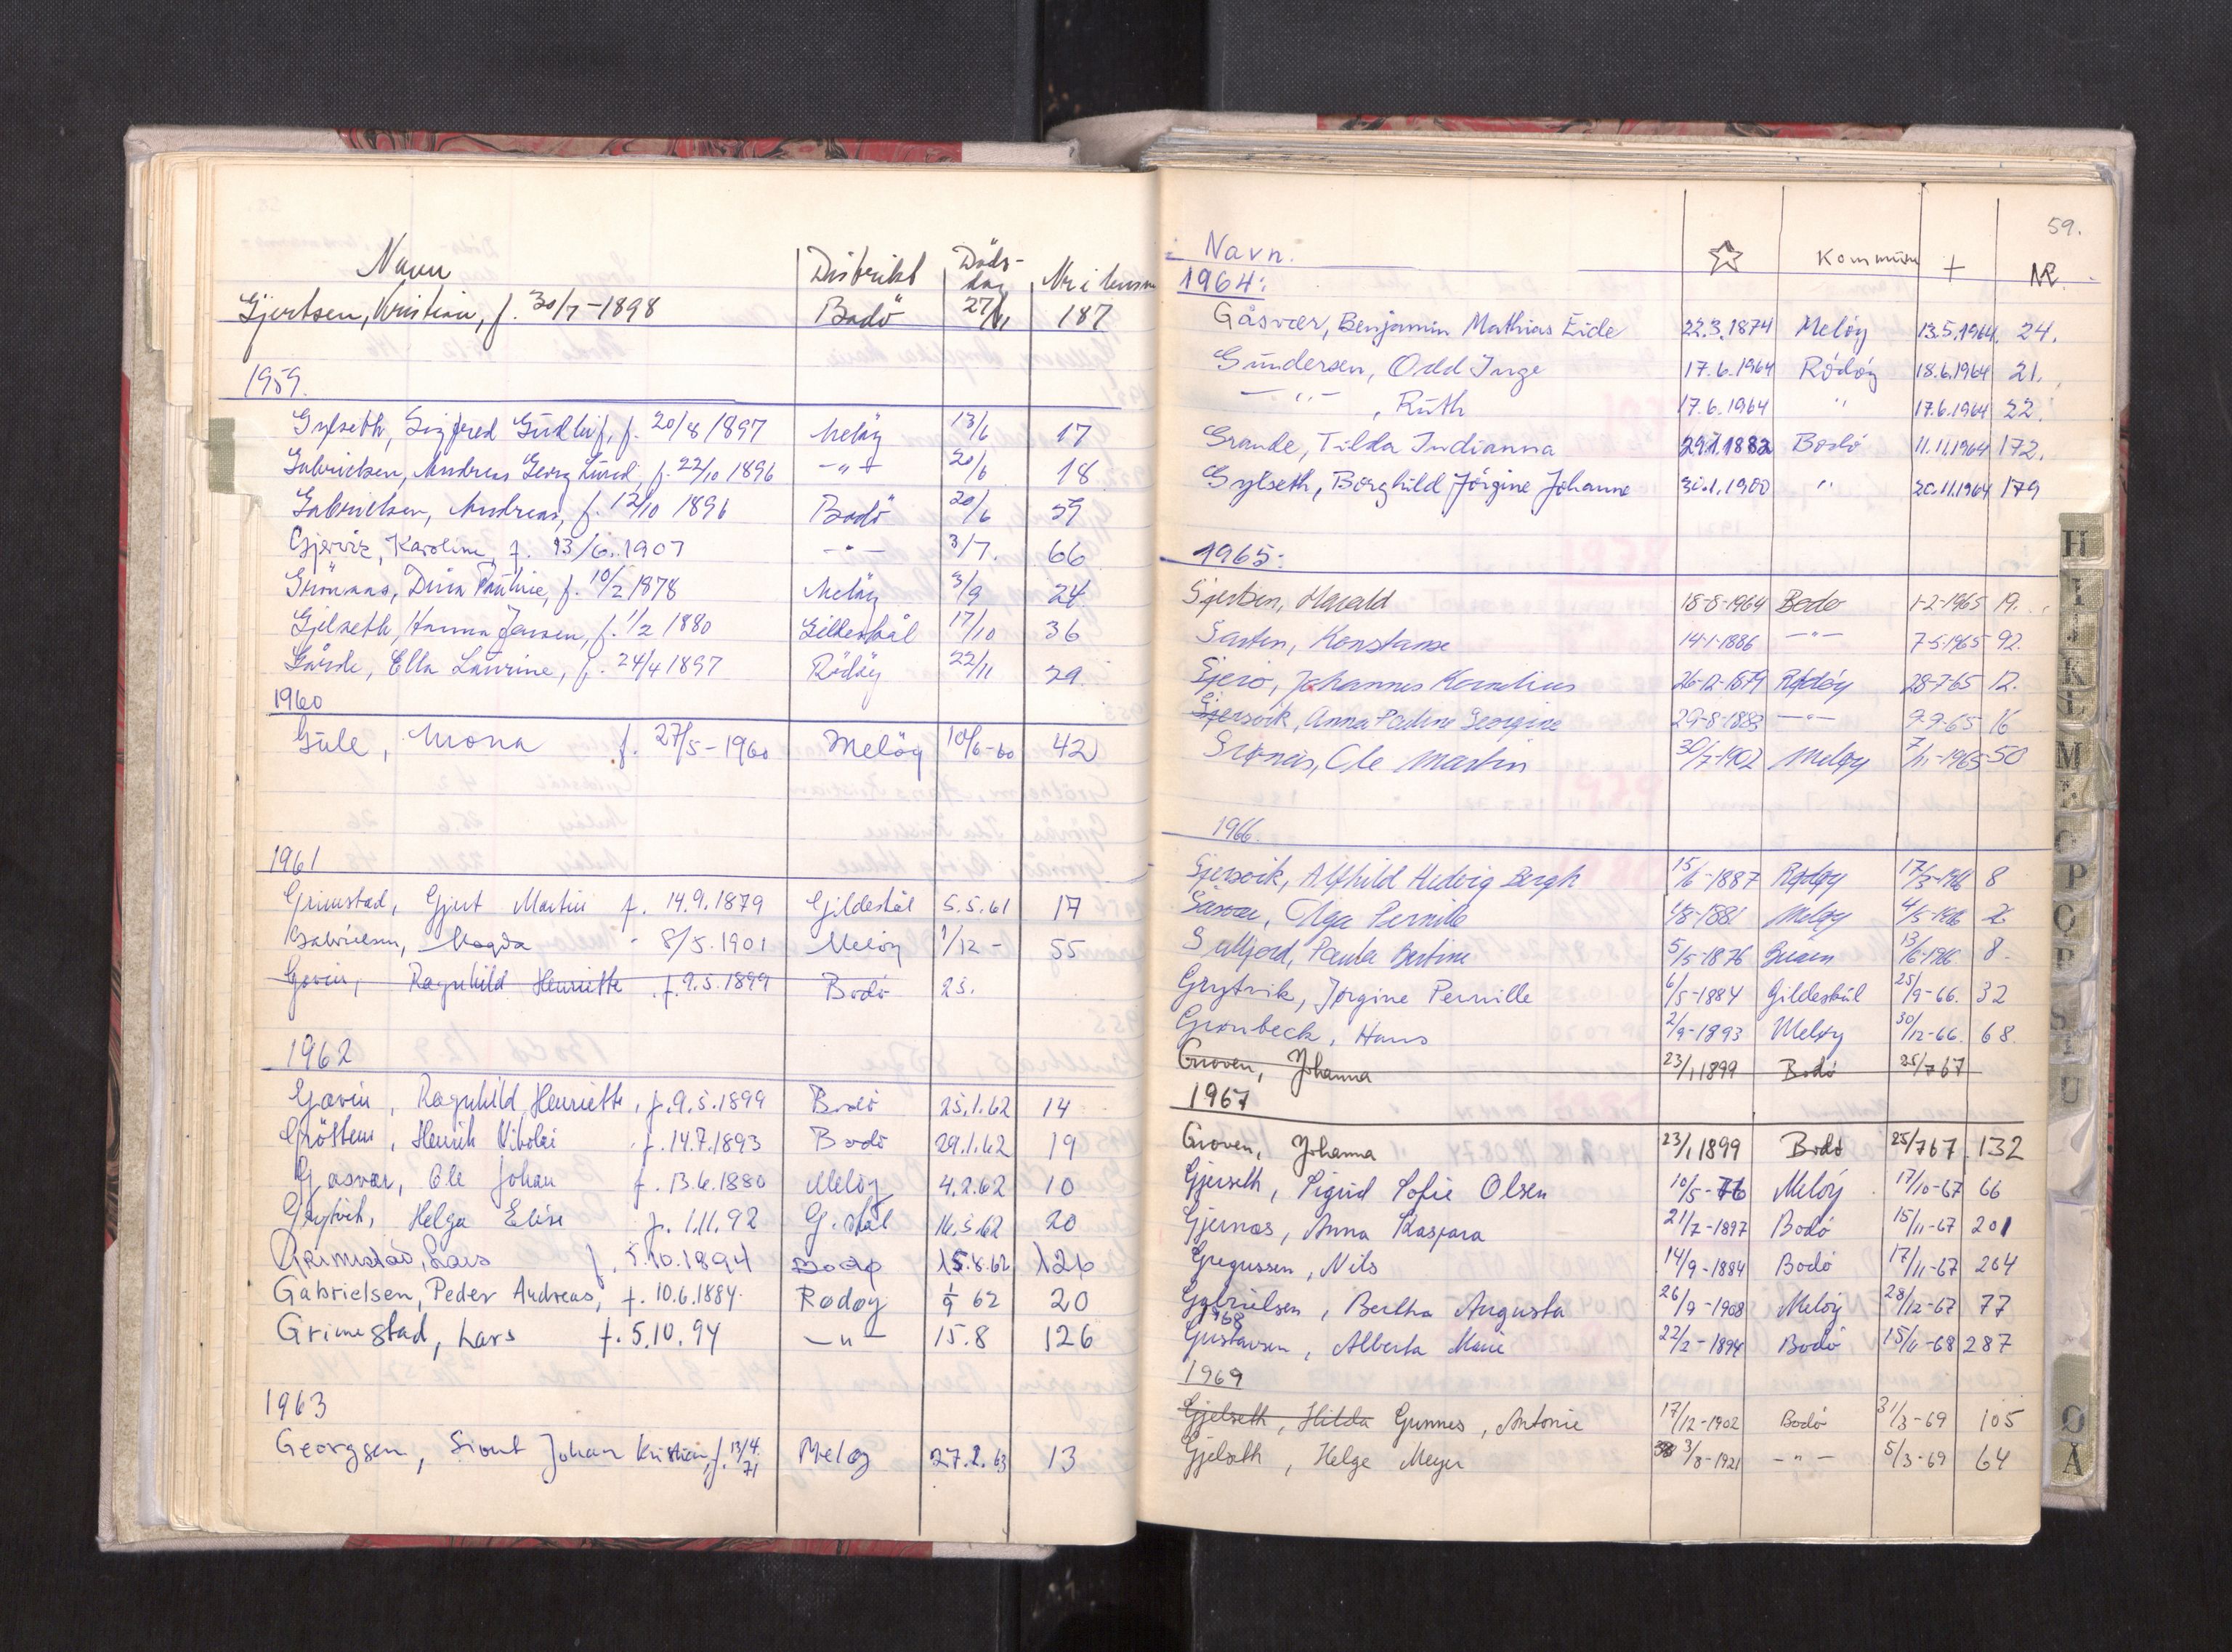 Navn Distrikt Döds-dag Nr i
Gjertsen, Kristian, f. 30/7-1898 Bodö 27/11 187
1959.
Gylseth, Sigfred Gudleif, f. 20/8 1897 Meløy 13/6 17
Gabrielsen, Andreas Georg Lund, f. 22/10 1896 -"- 20/6 18
Gabrielsen, Andreas, f. 12/10 1896 Bodö 20/6 59
Karoline, f. 13/6.1907 -"- 3/7. 66
Grönnaas, Dina Pauline, f. 10/2 1878 Meløy 3/9 24
Gjelseth, Hanna Jensen, f. 1/2 1880 Gildeskål 17/10 36
Gårde, Ella Laurine, f. 24/4 1897 Rödöy 22/11 29
1960
Gule, Mona f. 27/5-1960 Meløy 10/6-60 42
1961
Grimstad, Gjert Martin f. 14.9.1879 Gildeskål 5.5.61 17
Gabrielsen, Magda - 8/5.1901 Meløy 1/12 - 55
Gavin, Ragnhild Henriette f. 9.5.1899 Bodö 25.
1962
Gavin, Ragnhild Henriette, f. 9.5.1899 Bodö 25.1.62 14
Henrik Nikolai f. 14.7.1893 Bodö 29.1.62 19
Gåsvær, Ole Johan f. 13.6.1880 Meløy 4.2.62 10
Grytvik, Helga Elise f. 1.11.92 G.skål 16.5.62 20
Grimstad, Lars f. 5.10.1894 Bodø 15.8.62 126
Gabrielsen, Peder Andreas, f. 10.6.1884. Rødøy 1/9 62 20
Grimestad, Lars f. 5.10.94 -"- 15.8 126
1963
Georgsen, Johan Kristian, f. 13/4.71 Meløy 27.2.63 13
59.
Navn. ☆ Kommune + NR.
1964:
Gåsvær, Benjamin Mathias Eide 22.3.1874 Meløy 13.5.1964. 24.
Gundersen, Odd Inge 17.6.1964 Rödöy 18.6.1964 21.
-"- , Ruth 17.6.1964 " 17.6.1964 22.
Grande, Tilda Indianna 29.1.1882 Bodö 11.11.1964 172.
Gylseth, Borghild Jörgine Johanne 31.1.1900 " 20.11.1964 179
1965:
Gjertsen, Harald 18-8-1964 Bodø 1-2-1965 19.
Konstanse 14-1-1886 -"- 7-5-1965 92.
Gjerø, Johannes Kornelius 26-12-1879 Rødøy 28-7-65 12.
Gjersvik, Anna Pauline Georgine 29-8-1883 -"- 9-9-65 16
Grønås, Ole Martin 30/7-1902 Meløy 7/11-1965 50
1966.
Gjersvik, Alfhild Hedvig Bergh 15/6-1887 Rødøy 17/3-1966 8
Gåsvær, Olga Pernille 1/8-1881 Meløy 4/5-1966 2
Paula Bertine 5/5-1876 13/6-1966 8.
Grytvik, Jørgine Pernille 6/5-1884 Gildeskål 25/9-66. 32
Grønbeck, Hans 2/9-1893 Meløy 30/12-66. 68.
Groven, Johanna 23/1 1899 Bodö 25/7 67
1967
Groven, Johanna 23/1 1899 Bodö 25/7 67 132
Gjerseth, Sigrid Sofie Olsen 10/5-76 Meløy 17/10-67 66
Gjernæs, Anna Kaspara 21/7-1897 Bodö 15/11-67 201
Gregussen, Nils 14/9-1884 Bodö 17/11-67 204
Gabrielsen, Bertha Augusta 26/9-1908 Meløy 28/12-67 77
1968
Gustavsen, Alberta Marie 22/2-1894 Bodö 15/11-68 287
1969
Gjelseth, Hilda Gunnes, Antonie 17/12-1902 Bodö 31/3-69 105
Gjelseth, Helge Meyer 3/8-1921 -"- 5/3-69 64
H
I
K
L
M
P
U
Ø
Å